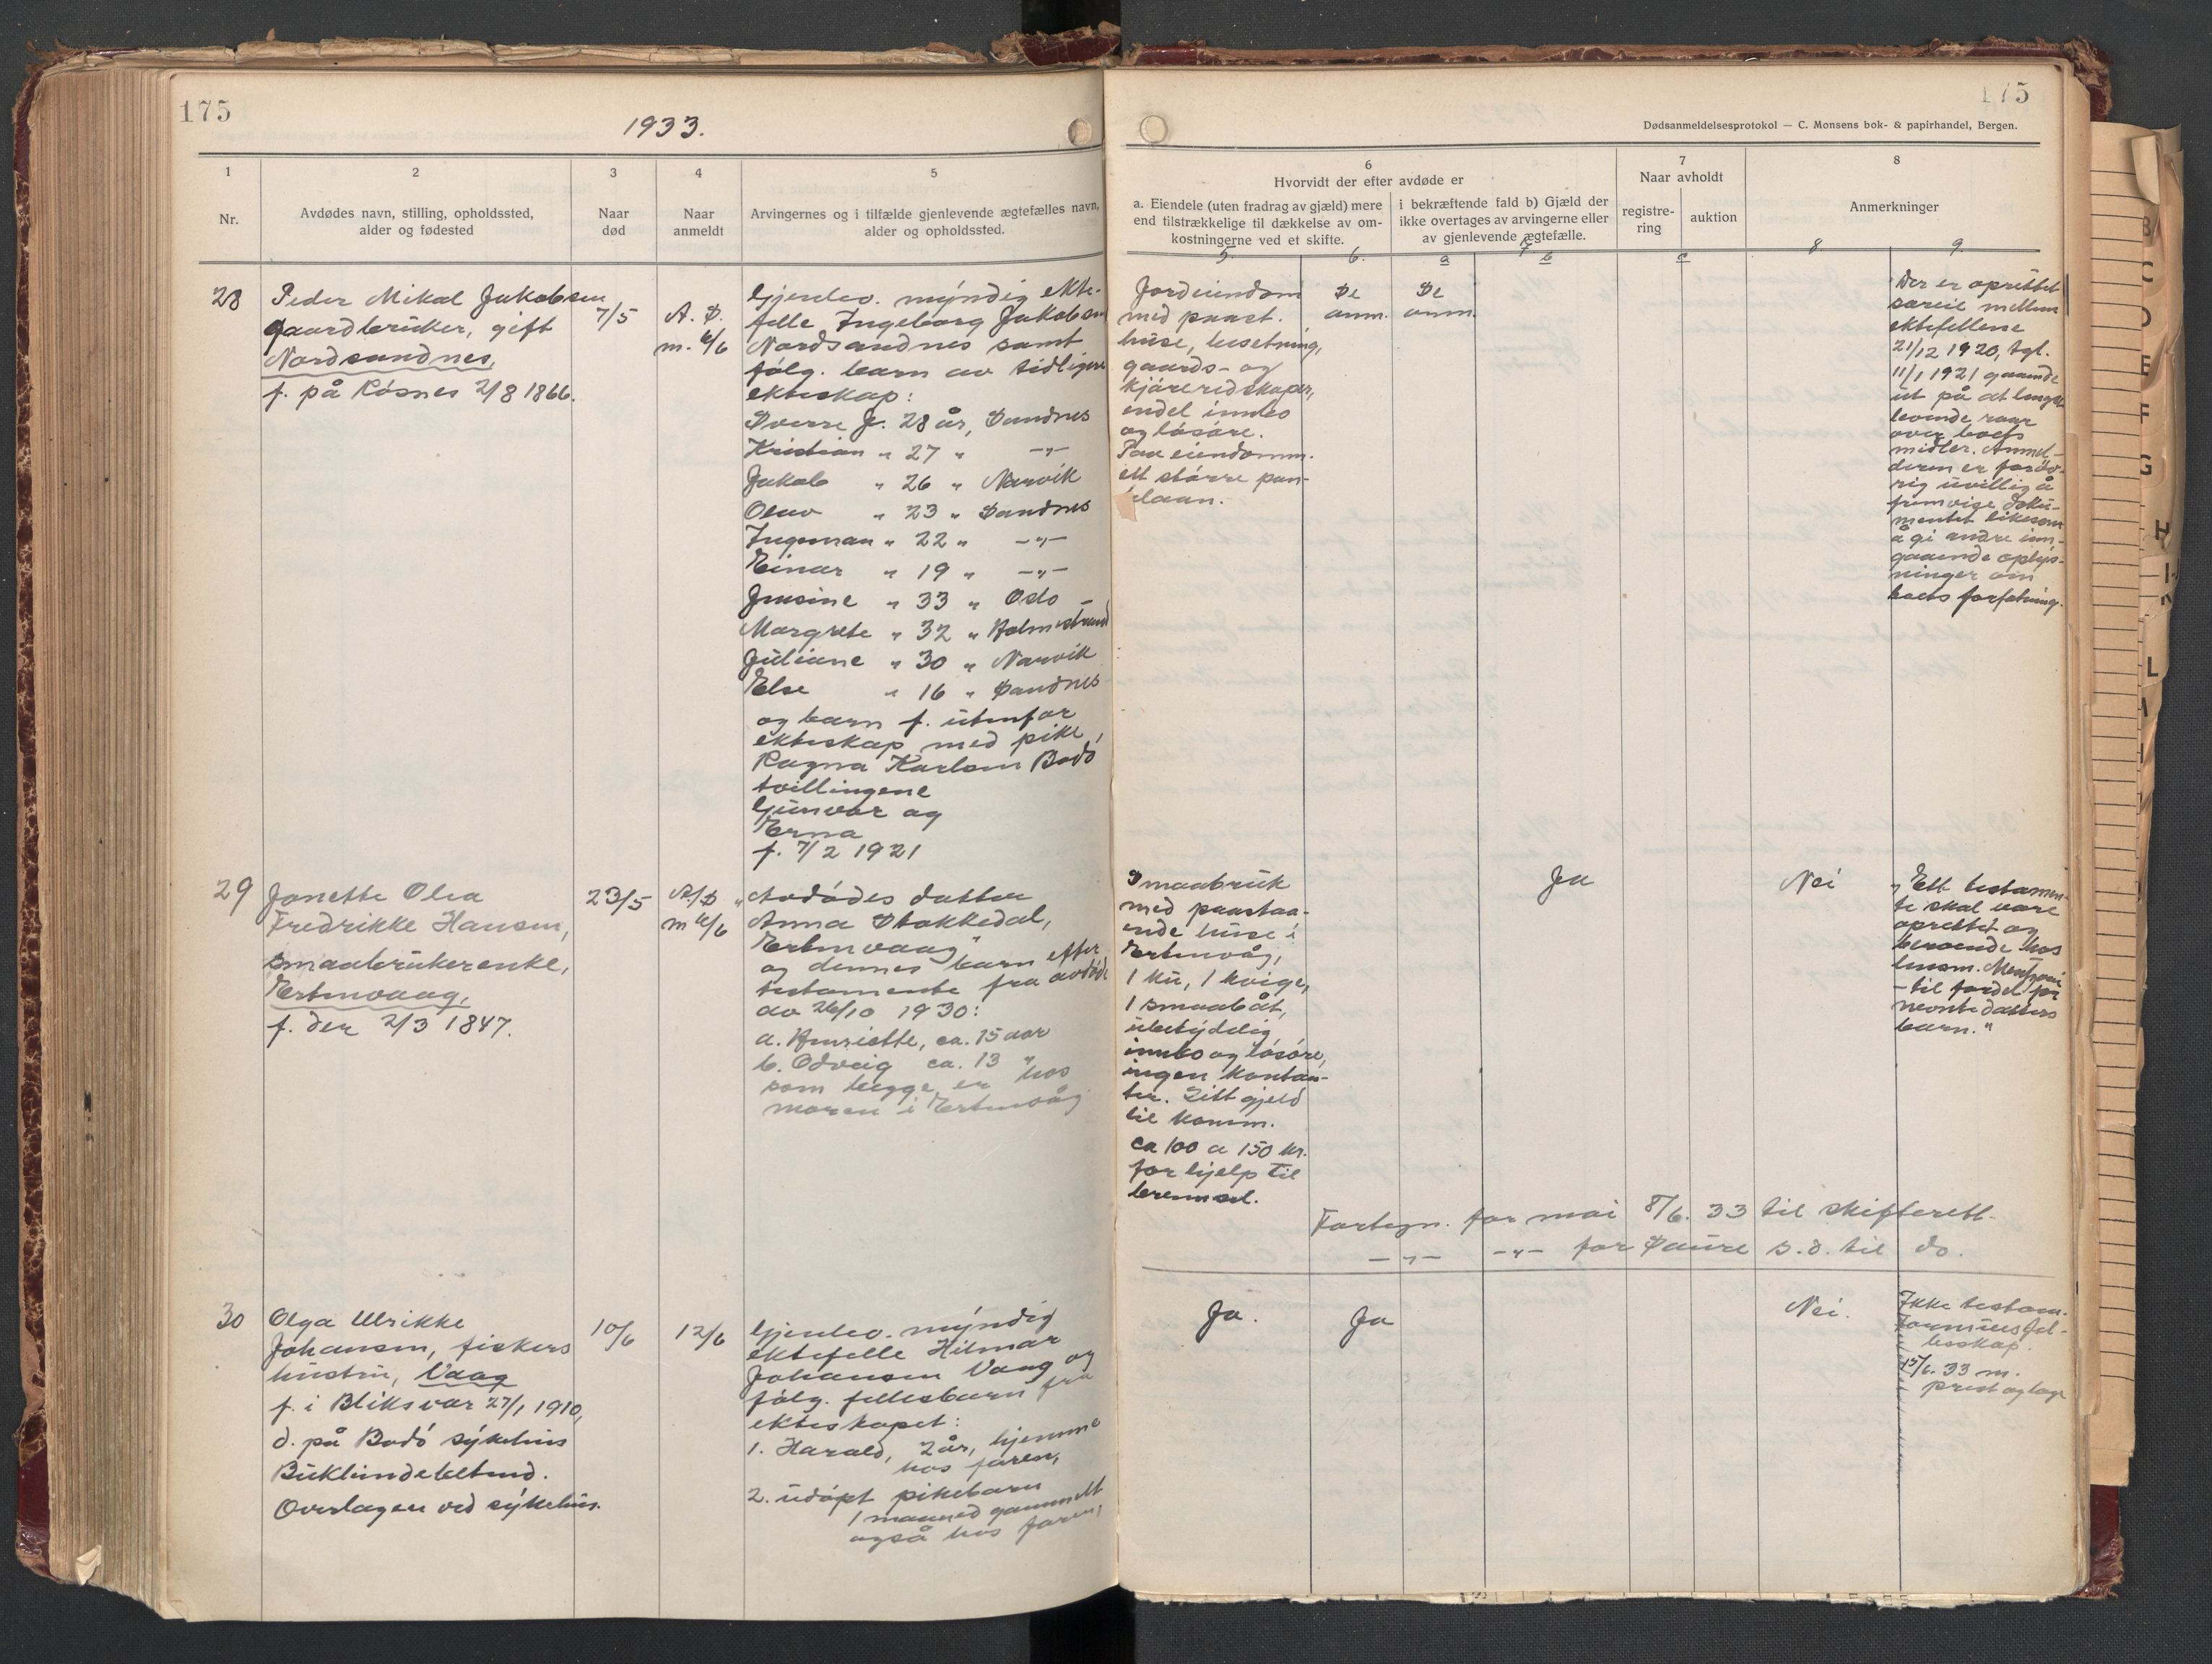 175
1933.
1
2
3
4
5
Nr.
Avdødes navn, stilling, opholdssted,
alder og fødested
Naar
død
Naar
anmeldt
Arvingernes og i tilfælde gjenlevende ægtefælles navn,
alder og opholdssted.
28
Peder Mikal Jakobsen
gaardbruker, gift
Nordsandnes,
f. på Røsnes 2/8 1866.
7/5
A. S.
m. 6/6
Gjenlev. myndig ekte-
felle Ingeborg Jakobsen
Nordsandnes samt
følg. barn av tidligere
ekteskap:
Sverre J. 28 år, Sandnes
Kristian " 27 " -"-
Jakob " 26 " Narvik
Olav " 23 " Sandnes
Ingeman " 22 " -"-
Einar " 19 " -"-
Jensine " 33 " Oslo
Margrete " 32 " Holmestrand
Juliane " 30 " Narvik
Else " 16 " Sandnes
og barn f. utenfor
ekteskap med pike,
Ragna Karlsen Bodø
tvillingene
Gunvor og
Erna
f. 7/2 1921
29
Janette Olea
Fredrikke Hansen,
smaabrukerenke,
Ertenvaag,
f. der 2/3 1847.
23/5
A/S
m 6/6
"Avdødes datter
Anna Stokkedal,
Ertenvaag"
og dennes barn efter
testamente fra avdøde
av 26/10 1930:
a. Henriette, ca. 15 aar
b. Odveig ca. 13 "
som begge er hos
moren i Ertenvåg
30
Olga Ulrikke
Johansen, fiskers
hustru, Vaag
f. i Bliksvær 27/1 1910,
d. på Bodø sykehus
Buklundebetend.
Overlægen ved sykehus.
10/6
12/6
Gjenlev. myndig
ektefelle Hilmar
Johansen Vaag og
følg. fellesbarn fra
ekteskapet:
1. Harald, 2 år, hjemme
hos faren,
2. udøpt pikebarn
1 maaned gammelt
også hos faren,
175
Dødsanmeldelsesprotokol — C. Monsens bok- & papirhandel, Bergen.
6
Hvorvidt der efter avdøde er
a. Eiendele (uten fradrag av gjæld) mere
end tilstrækkelige til dækkelse av om-
kostningerne ved et skifte.
i bekræftende fald b) Gjæld der
ikke overtages av arvingerne eller
av gjenlevende ægtefælle.
7
Naar avholdt
registre-
ring
auktion
8
Anmerkninger
5.
6.
7
a
b
c
8
9.
Jordeiendom
med paast.
huse, besetning,
gaards- og
kjøreredskaper,
endel innbo
og løsøre.
Paa eiendomm.
ett større pan-
telaan.
Se
anm.
Se
anm.
Der er oprettet
særeie mellem
ektefellene
21/12 1920, tgl.
11/1 1921 gaaende
ut på at lengst
levende raar
over boets
midler. Anmel-
deren er forøv-
rig uvillig å
fremvise doku-
mentet likesom
å gi andre inn-
gaaende oplys-
ninger om
boets forfatning.
Smaabruk
med paastaa-
ende huse i
Ertenvåg,
1 ku, 1 kvige,
1 smaabåt,
ubetydelig
innbo og løsøre,
ingen kontan-
ter. Litt gjeld
til komm.
ca 100 a 150 kr.
for hjelp til
brennsel.
Ja
Nei
"Ett testamen-
te skal være
oprettet og
beroende hos
lensm.
- til fordel for
nevnte datters
barn."
Fortegn. for mai 8/6. 33 til skifterett.
-"- -"- for Saure s.d. til do.
Ja.
Ja
Nei.
Ikke testam.
Formuesfel-
lesskap.
15/6. 33 m.
prest og læge
B
C
D
E
F
G
H
L